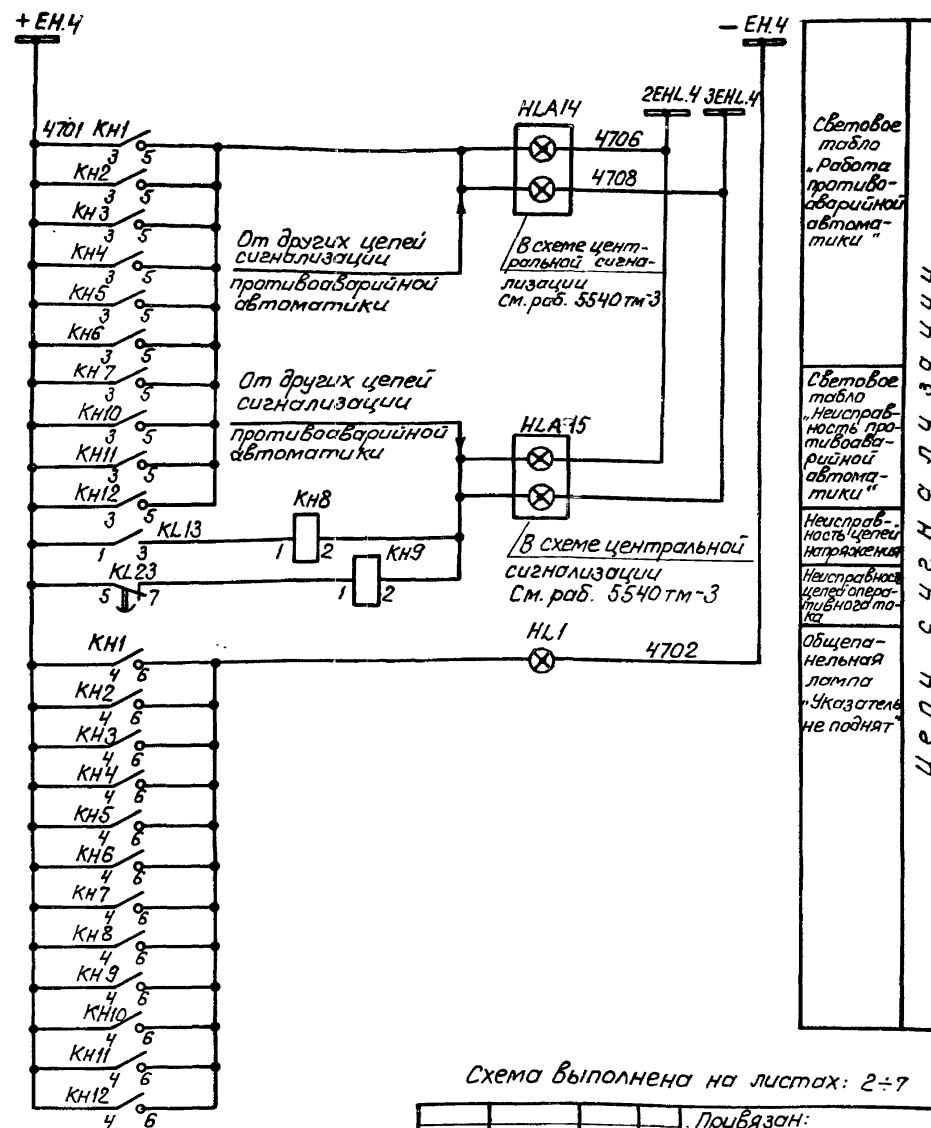 + ЕН.4
— ЕН.4
2EHL.4 3EHL.4
HLA14
4701 КН1
3 5
4706
КН2
3 5
4708
КН3
3 5
КН4
3 5
КН5
3 5
КН6
3 5
КН7
3 5
КН10
3 5
КН11
3 5
КН12
3 5
От других цепей
сигнализации
противоаварийной
автоматики
В схеме цент-
ральной сигна-
лизации
См. раб. 5540тм-3
От других цепей
сигнализации
противоаварийной
автоматики
HLA15
KL13
1 3
КН8
1 2
КН9
1 2
KL23
5 7
В схеме центральной
сигнализации
См. раб. 5540тм-3
HL1
4702
КН1
4 6
КН2
4 6
КН3
4 6
КН4
4 6
КН5
4 6
КН6
4 6
КН7
4 6
КН8
4 6
КН9
4 6
КН10
4 6
КН11
4 6
КН12
4 6
Световое
табло
„Работа
противо-
аварийной
автома-
тики"
Световое
табло
„Неисправ-
ность про-
тивоава-
рийной
автома-
тики"
Неисправ-
ность цепей
напряжения
Неисправность
цепей опера-
тивного то-
ка
Общепа-
нельная
лампа
„Указатель
не поднят"
Цепи сигнализации
Схема выполнена на листах: 2÷7
Привязан: